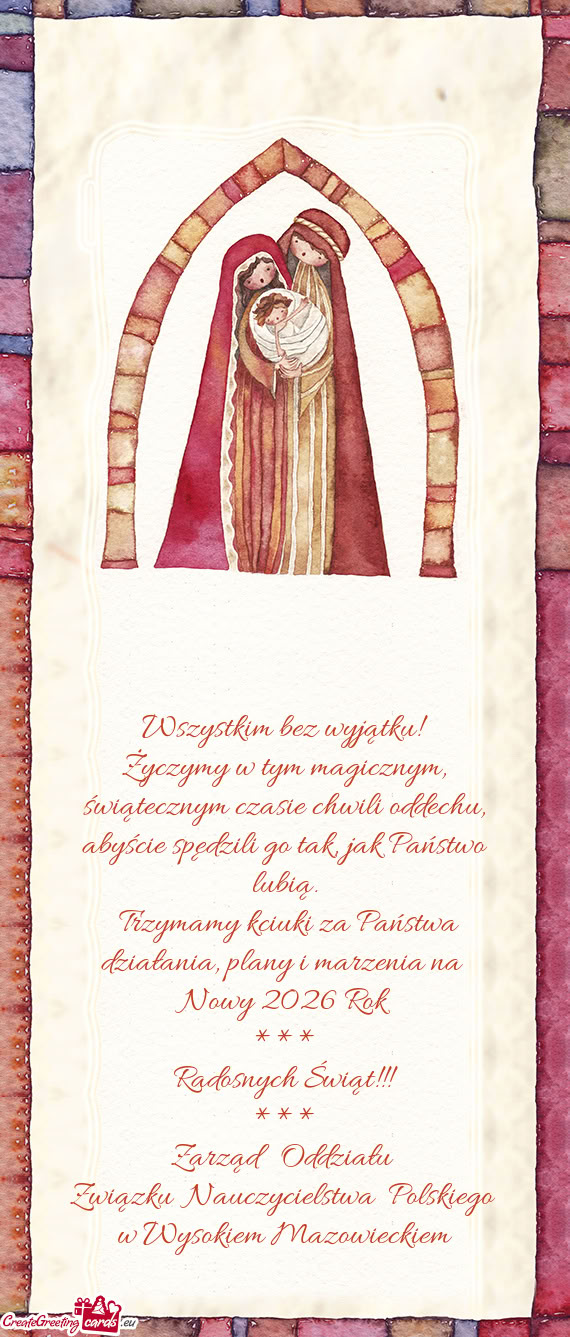 Wszystkim bez wyjątku!
Życzymy w tym magicznym,
świątecznym czasie chwili oddechu,
abyście spędzili go tak, jak Państwo
lubią.
Trzymamy kciuki za Państwa
działania, plany i marzenia na
Nowy 2026 Rok
* * *
Radosnych Świąt!!!
* * *
Zarząd Oddziału
Związku Nauczycielstwa Polskiego
w Wysokiem Mazowieckiem
CreateGreetingcards.eu